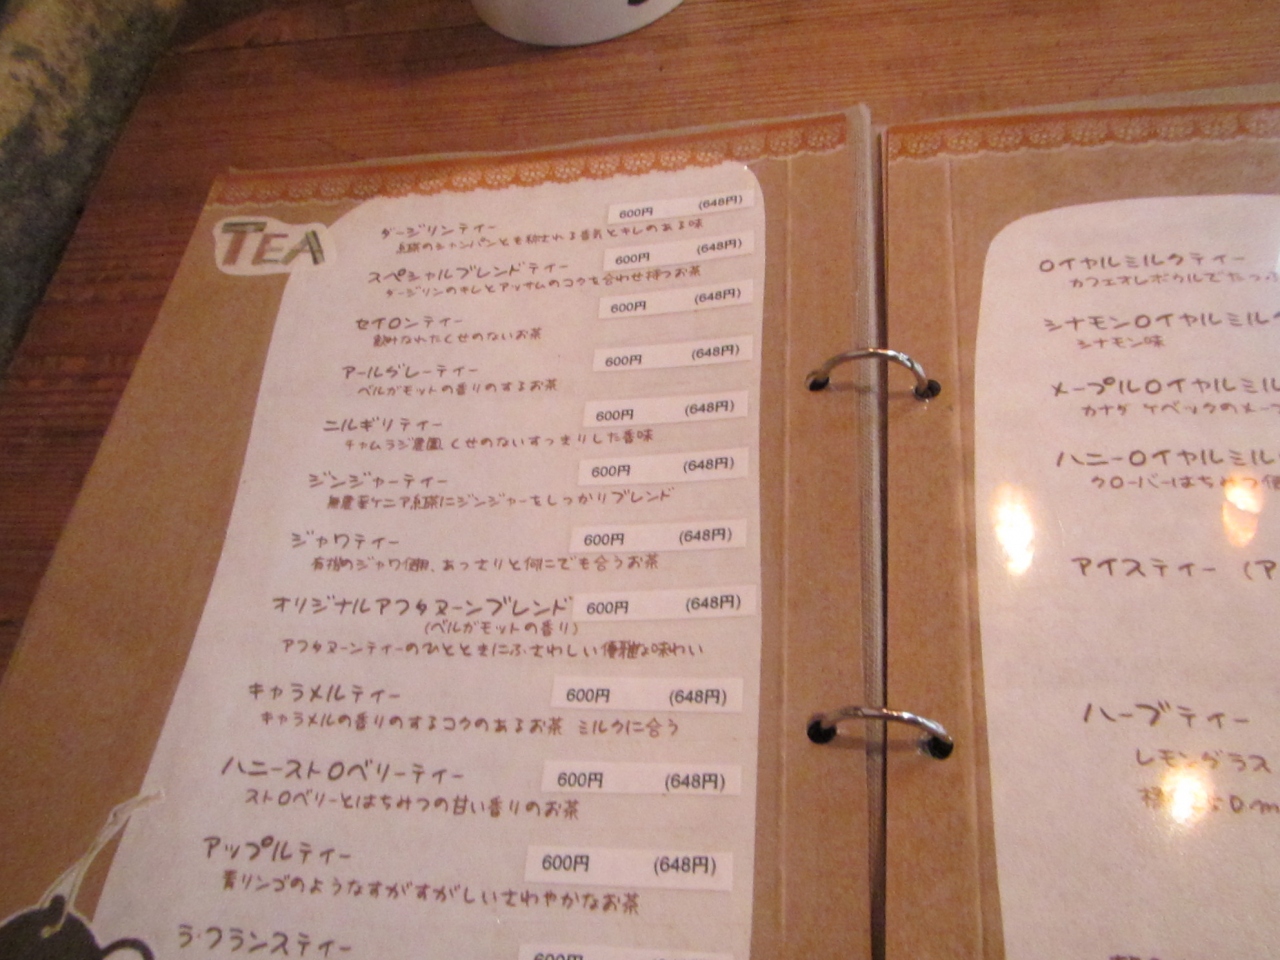 TEA
ダージリンティー 600円 (648円)
紅茶のシャンパンとも称される香気とキレのある味
スペシャルブレンドティー 600円 (648円)
ダージリンのキレとアッサムのコクを合わせ持つお茶
セイロンティー 600円 (648円)
飲みなれたくせのないお茶
アールグレーティー 600円 (648円)
ベルガモットの香りのするお茶
ニルギリティー 600円 (648円)
チャムラジ農園 くせのないすっきりした香味
ジンジャーティー 600円 (648円)
無農薬ケニア紅茶にジンジャーをしっかりブレンド
ジャワティー 600円 (648円)
有機のジャワ使用、あっさりと何にでも合うお茶
オリジナルアフタヌーンブレンド 600円 (648円)
(ベルガモットの香り)
アフタヌーンティーのひとときにふさわしい優雅な味わい
キャラメルティー 600円 (648円)
キャラメルの香りのするコクのあるお茶 ミルクに合う
ハニーストロベリーティー 600円 (648円)
ストロベリーとはちみつの甘い香りのお茶
アップルティー 600円 (648円)
青リンゴのようなすがすがしいさわやかなお茶
ラ・フランスティー 600円
ロイヤルミルクティー
カフェオレボウルでたっぷ
シナモンロイヤルミルク
シナモン味
メープルロイヤルミル
カナダ ケベックのメープ
ハニーロイヤルミル
クローバーはちみつ使
アイスティー (ア
ハーブティー
レモングラス